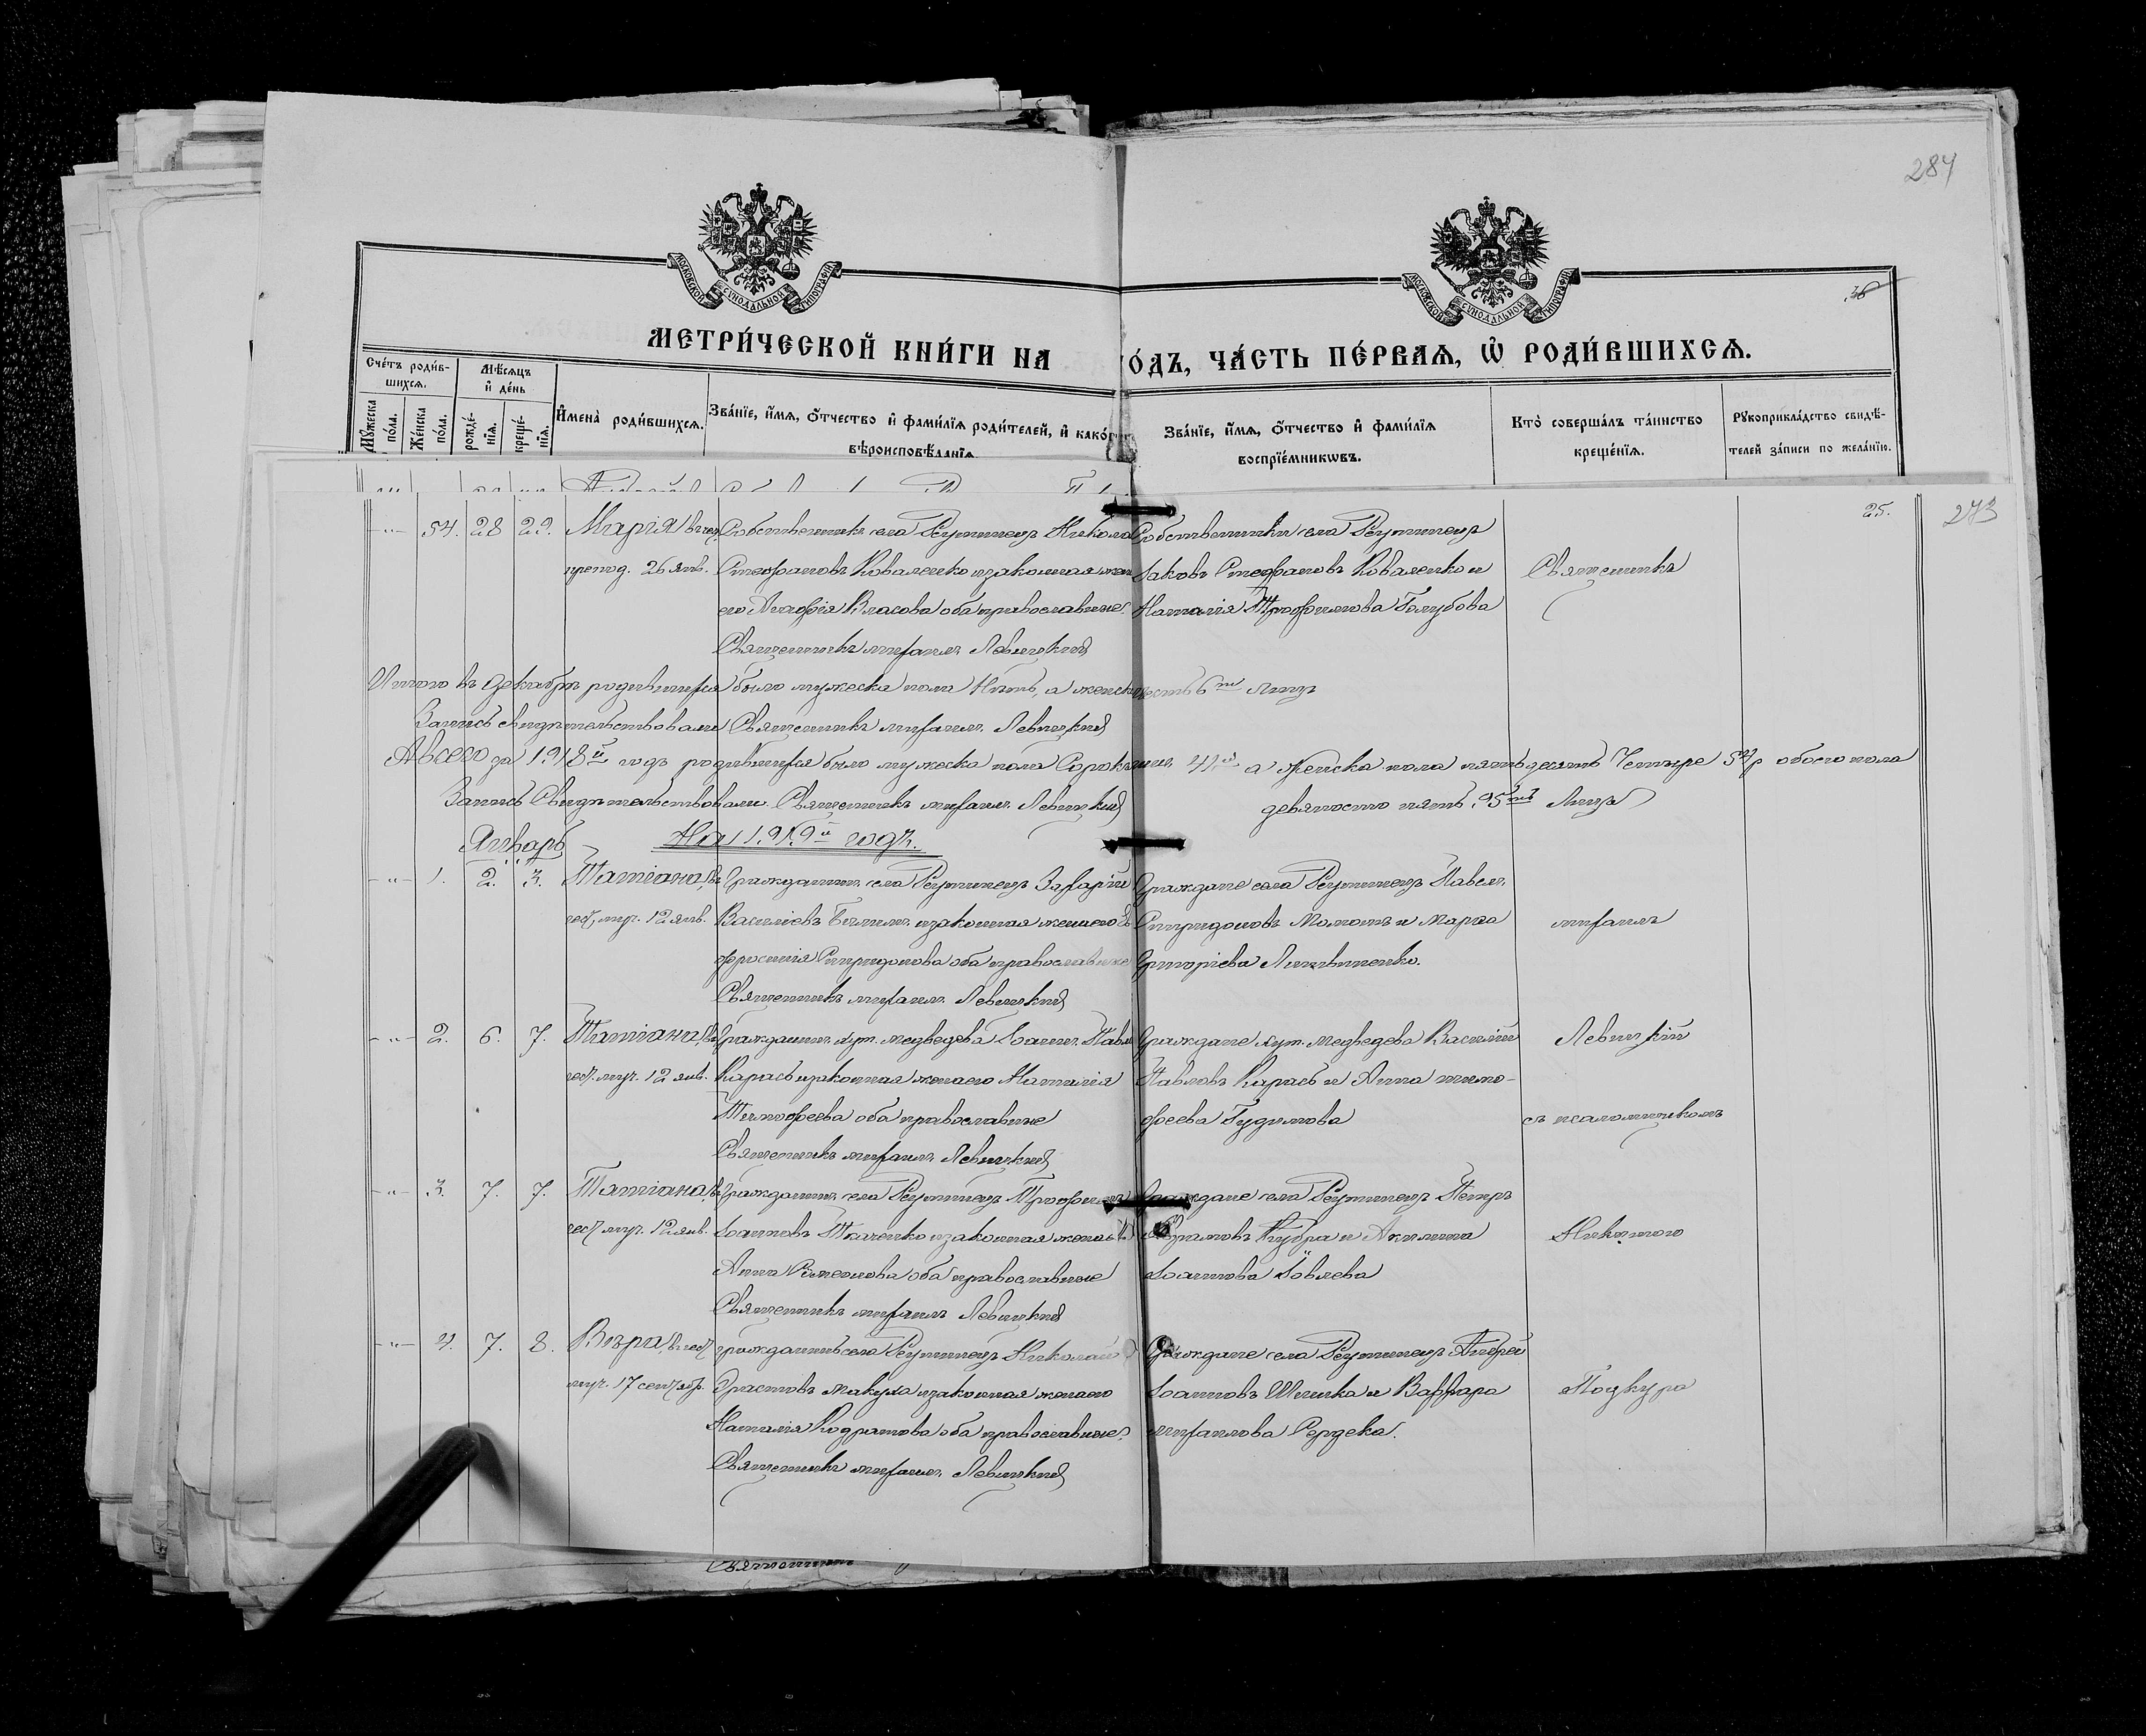 284
МОСКОВСКОЙ СѴНОДАЛЬНОЙ ТИПОГРАФІИ
МОСКОВСКОЙ СѴНОДАЛЬНОЙ ТИПОГРАФІИ
36
МЕТРИ́ЧЕСКОЙ КНИ́ГИ НА
О́ДЪ, ЧА́СТЬ ПЕ́РВАѦ, Ѡ РОДИ́ВШИХСѦ.
Сче́тъ роди́в-
шихсѧ.
Мѣ́сѧцъ
и де́нь
Мꙋ́жеска
по́ла.
Же́нска
по́ла.
рожде́-
нїѧ.
креще́-
нїѧ.
Имена̀ роди́вшихсѧ.
Зва́нїе, и́мѧ, о́тчество и фами́лїѧ роди́телей, и како́г
вѣроисповѣ́данїѧ
Зва́нїе, и́мѧ, о́тчество и фами́лїѧ
воспрїе́мникѡвъ.
Кто̀ соверша́лъ та́инство
креще́нїѧ.
Рꙋкоприкла́дство свидѣ́-
телей за́писи по жела́нїю.
25.
273
-"- 54. 28 29. Марія
препод. 26 янв.
Собственникъ села Реутинецъ Никола
Стефановъ Коваленко и законная жен
его Агафія Власова оба православные.
Священникъ Михаилъ Левицкій
Собственники села Реутинецъ
Іаковъ Стефановъ Коваленко и
Наталія Трофимова Голубова
Священникъ
Итого въ Декабрѣ родившихся было мужеска пола Нѣтъ, а женск шесть 6ть лицъ
Запись свидѣтельствовали Священникъ Михаилъ Левицкій
А всего за 1918й годъ родившихся было мужеска пола Сорокъ 41 а Женска пола пятьдесятъ Четыре 54ре обоего пола
Запись Свидѣтельствовали Священникъ Михаилъ Левицкій девяносто пять 95ть Лицъ
Январь На 1919й годъ.
-"- 1. 2. 3. Татіана, въ
муч. 12 янв.
Гражданинъ села Реутинецъ Захарій
Василіевъ и законная жена его Ев
фросинія Спиридонова оба православные
Священникъ Михаилъ Левицкій
Граждане села Реутинецъ Павелъ
Спиридоновъ Момотъ и Марѳа
Григоріева Литвиненко.
Михаилъ
-"- 2. 6. 7. Татіана, въ
муч. 12 янв.
Гражданинъ хут. Медведева Іоаннъ Павл
Карась и законная жена его Наталія
Тимофеева оба православные
Священникъ Михаилъ Левицкій
Граждане хут. Медведева Василій
Павловъ Карась и Анна Тимо-
феева Гудимова
Левицкій
съ псаломщикомъ
-"- 3. 7. 7. Татіана, въ
муч. 12 янв.
Гражданинъ села Реутинецъ Трофимъ
Іоанновъ Ткаченко и законная жена его
Анна Симеонова оба православные
Священникъ Михаилъ Левицкій
Граждане села Реутинецъ Петръ
Абрамовъ и Акилина
Іоаннова Іовлева
-"- 4. 7. 8. Вѣра, въ чест
муч. 17 сентябр.
гражданинъ села Реутинецъ Николай
Ерастовъ Макуха и законная жена его
Наталія Кодратова оба православные.
Священникъ Михаилъ Левицкій
Граждане села Реутинецъ Андрей
Іоанновъ и Варвара
Михаилова Сердека.